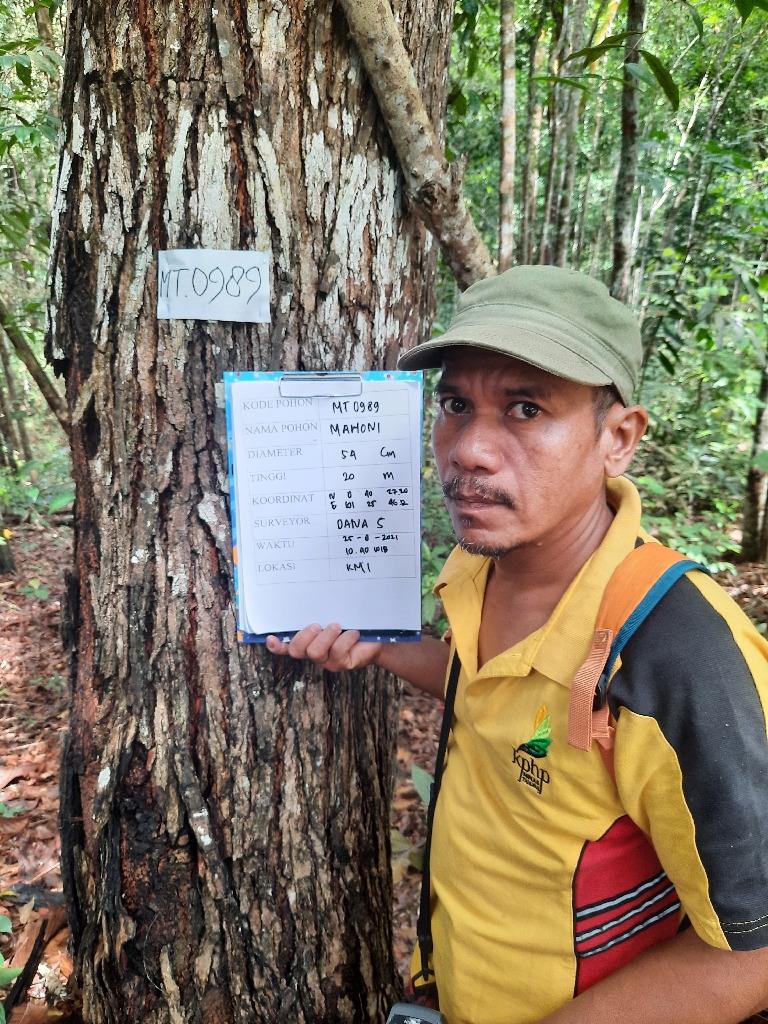 MT.0989
KODE POHON MT 0989
NAMA POHON MAHONI
DIAMETER 54 Cm
TINGGI 20 M
KOORDINAT N 0 40 27.20
E 101 25 46.12
SURVEYOR DANA S
WAKTU 25-8-2021
10.40 WIB
LOKASI KM 1
kphp